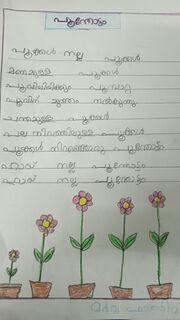 പൂന്തോട്ടം
പൂക്കൾ നല്ല പൂക്കൾ
മണമുള്ള പൂക്കൾ
പൂവിലിരിക്കും പൂമ്പാറ്റ
പൂവിന് മുത്തം നൽകുന്നു
ചന്തമുള്ള പൂക്കൾ
പല നിറത്തിലുള്ള പൂക്കൾ
പൂക്കൾ നിറഞ്ഞൊരു പൂന്തോട്ടം
ഹായ് നല്ല പൂന്തോട്ടം
ഹായ് നല്ല പൂന്തോട്ടം
ഫാത്തിമ